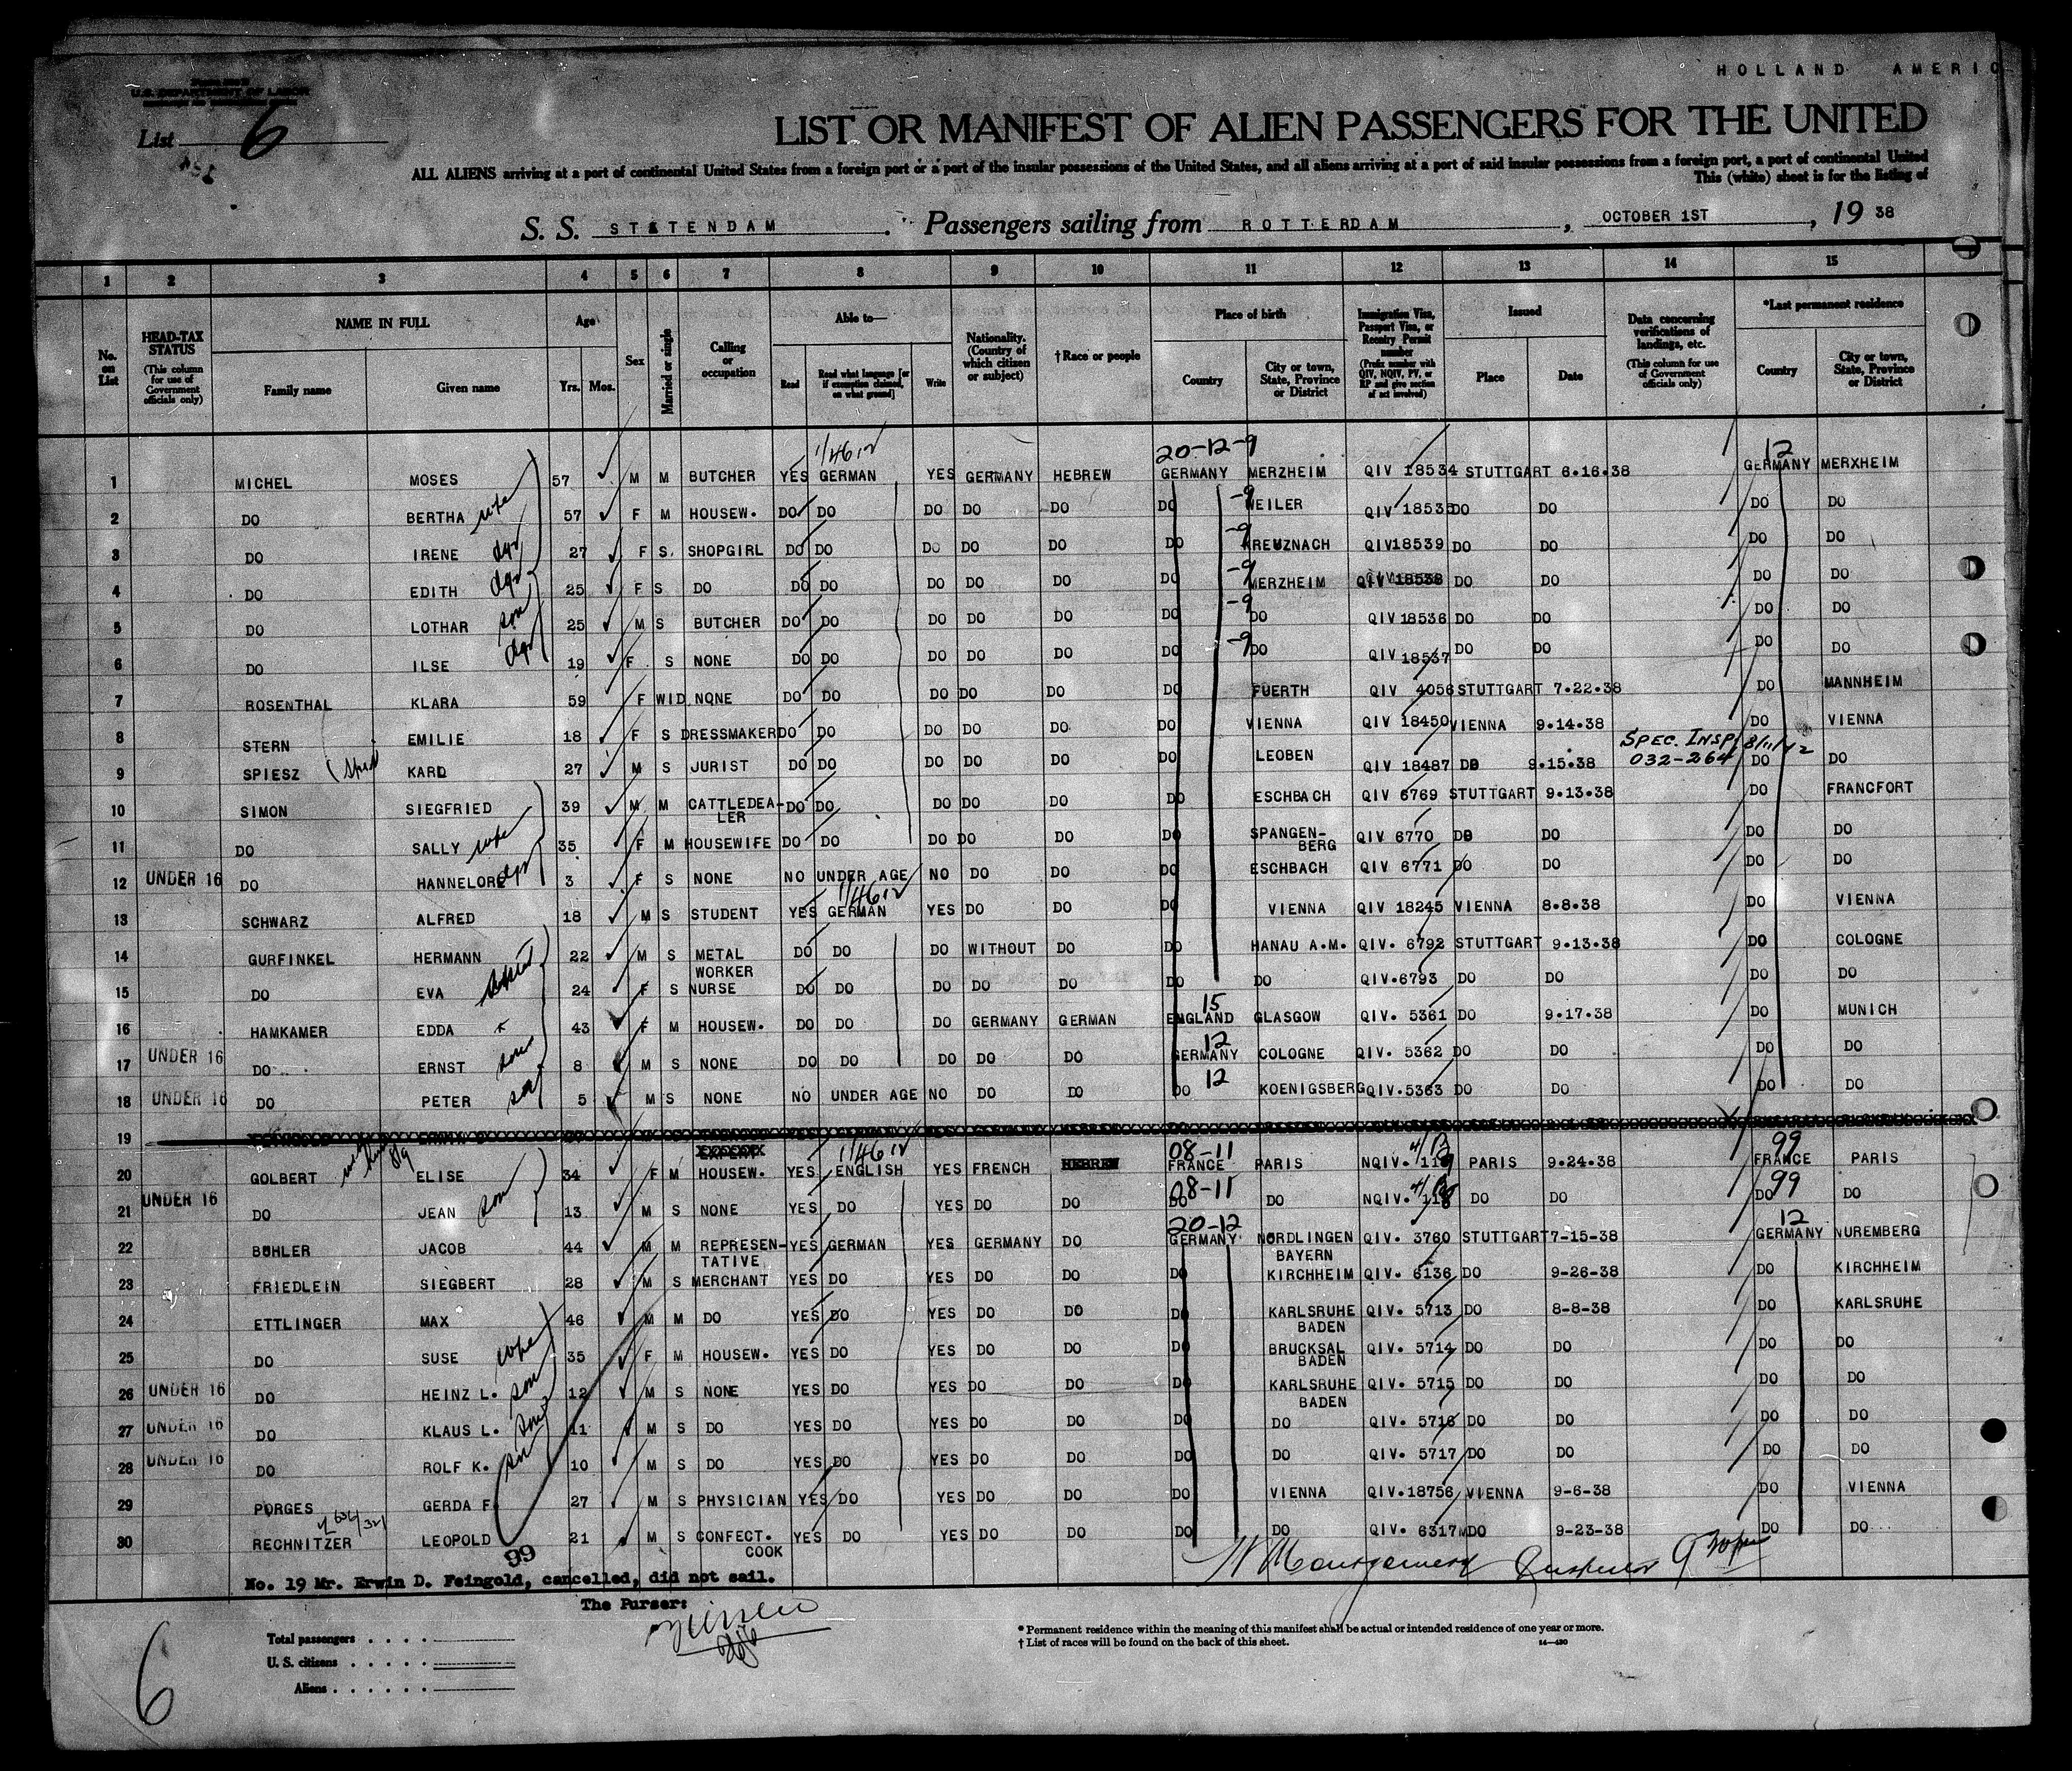 HOLLAND AMERIC
U.S. DEPARTMENT OF LABOR
List 6
LIST OR MANIFEST OF ALIEN PASSENGERS FOR THE UNITED
ALL ALIENS arriving at a port of continental United States from a foreign port or a port of the insular possessions of the United States, and all aliens arriving at a port of said insular possessions from a foreign port, a port of continental United
This (white) sheet is for the listing of
S. S. STATENDAM. Passengers sailing from ROTTERDAM, OCTOBER 1ST, 19 38
1 2 3 4 5 6 7 8 9 10 11 12 13 14 15
No. on List
HEAD-TAX STATUS (This column for use of Government officials only)
NAME IN FULL Family name Given name
Age Yrs. Mos.
Sex
Married or single
Calling or occupation
Able to— Read Read what language [or if exemption claimed, on what ground] Write
Nationality. (Country of which citizen or subject)
† Race or people
Place of birth Country City or town, State, Province or District
Immigration Visa, Passport Visa, or Reentry Permit number (Prefix number with QIV, NQIV, PV, or RP and give section of act involved)
Issued Place Date
Data concerning verifications of landings, etc. (This column for use of Government officials only)
*Last permanent residence Country City or town, State, Province or District
20-12-9 12
1 MICHEL MOSES 57 M M BUTCHER YES GERMAN YES GERMANY HEBREW GERMANY MERZHEIM QIV 18534 STUTTGART 6.16.38 GERMANY MERXHEIM
2 DO BERTHA wife 57 F M HOUSEW. DO DO DO DO DO DO -9 WEILER QIV 18535 DO DO DO DO
3 DO IRENE dgr 27 F S. SHOPGIRL DO DO DO DO DO DO -9 KREUZNACH QIV18539 DO DO DO DO
4 DO EDITH dgr 25 F S DO DO DO DO DO DO DO -9 MERZHEIM QIV 18538 DO DO DO DO
5 DO LOTHAR son 25 M S BUTCHER DO DO DO DO DO DO -9 DO QIV 18536 DO DO DO DO
6 DO ILSE dgr 19 F S NONE DO DO DO DO DO DO -9 DO QIV 18537 DO DO DO DO
7 ROSENTHAL KLARA 59 F WID NONE DO DO DO DO DO DO FUERTH QIV 4056 STUTTGART 7.22.38 DO MANNHEIM
8 STERN EMILIE 18 F S DRESSMAKER DO DO DO DO DO DO VIENNA QIV 18450 VIENNA 9.14.38 DO VIENNA
SPEC. INSP. 8/11/42
9 SPIESZ KARL 27 M S JURIST DO DO DO DO DO DO LEOBEN QIV 18487 DO 9.15.38 032-264 DO DO
10 SIMON SIEGFRIED 39 M M CATTLEDEA-LER DO DO DO DO DO DO ESCHBACH QIV 6769 STUTTGART 9.13.38 DO FRANCFORT
11 DO SALLY wife 35 F M HOUSEWIFE DO DO DO DO DO DO SPANGEN-BERG QIV 6770 DO DO DO DO
12 UNDER 16 DO HANNELORE dgr 3 F S NONE NO UNDER AGE NO DO DO DO ESCHBACH QIV 6771 DO DO DO DO
13 SCHWARZ ALFRED 18 M S STUDENT YES GERMAN YES DO DO DO VIENNA QIV 18245 VIENNA 8.8.38 DO VIENNA
14 GURFINKEL HERMANN 22 M S METAL WORKER DO DO DO WITHOUT DO DO HANAU A.M. QIV. 6792 STUTTGART 9.13.38 DO COLOGNE
15 DO EVA 24 F S NURSE DO DO DO DO DO DO DO QIV.6793 DO DO DO DO
16 HAMKAMER EDDA 43 F M HOUSEW. DO DO DO GERMANY GERMAN 15 ENGLAND GLASGOW QIV. 5361 DO 9.17.38 DO MUNICH
17 UNDER 16 DO ERNST son 8 M S NONE DO DO DO DO DO 12 GERMANY COLOGNE QIV. 5362 DO DO DO DO
18 UNDER 16 DO PETER son 5 M S NONE NO UNDER AGE NO DO DO DO 12 KOENIGSBERG QIV.5363 DO DO DO DO
19
08-11 99
20 GOLBERT ELISE 34 F M HOUSEW. YES ENGLISH YES FRENCH HEBREW FRANCE PARIS NQIV. PARIS 9.24.38 FRANCE PARIS
08-11 99
21 UNDER 16 DO JEAN son 13 M S NONE YES DO YES DO DO DO DO NQIV. DO DO DO DO
20-12 12
22 BÜHLER JACOB 44 M M REPRESEN-TATIVE YES GERMAN YES GERMANY DO GERMANY NORDLINGEN BAYERN QIV. 3760 STUTTGART 7-15-38 GERMANY NUREMBERG
23 FRIEDLEIN SIEGBERT 28 M S MERCHANT YES DO YES DO DO DO KIRCHHEIM QIV. 6136 DO 9-26-38 DO KIRCHHEIM
24 ETTLINGER MAX 46 M M DO YES DO YES DO DO DO KARLSRUHE BADEN QIV. 5713 DO 8-8-38 DO KARLSRUHE
25 DO SUSE wife 35 F M HOUSEW. YES DO YES DO DO DO BRUCKSAL BADEN QIV. 5714 DO DO DO DO
26 UNDER 16 DO HEINZ L. son 12 M S NONE YES DO YES DO DO DO KARLSRUHE BADEN QIV. 5715 DO DO DO DO
27 UNDER 16 DO KLAUS L. son 11 M S DO YES DO YES DO DO DO DO QIV. 5716 DO DO DO DO
28 UNDER 16 DO ROLF K. son 10 M S DO YES DO YES DO DO DO DO QIV. 5717 DO DO DO DO
29 PORGES GERDA F. 27 M S PHYSICIAN YES DO YES DO DO DO VIENNA QIV.18756 VIENNA 9-6-38 DO VIENNA
30 RECHNITZER LEOPOLD 21 M S CONFECT. COOK YES DO YES DO DO DO DO QIV. 6317 DO 9-23-38 DO DO
99
No. 19 Mr. Erwin D. Feingold, cancelled, did not sail.
The Purser:
Total passengers
U. S. citizens
Aliens
* Permanent residence within the meaning of this manifest shall be actual or intended residence of one year or more.
† List of races will be found on the back of this sheet. 14—430
6